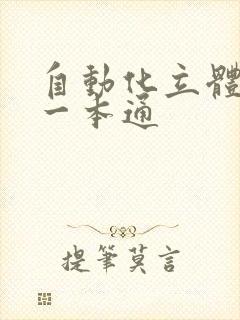 自動化立體
一本通
提筆莫言